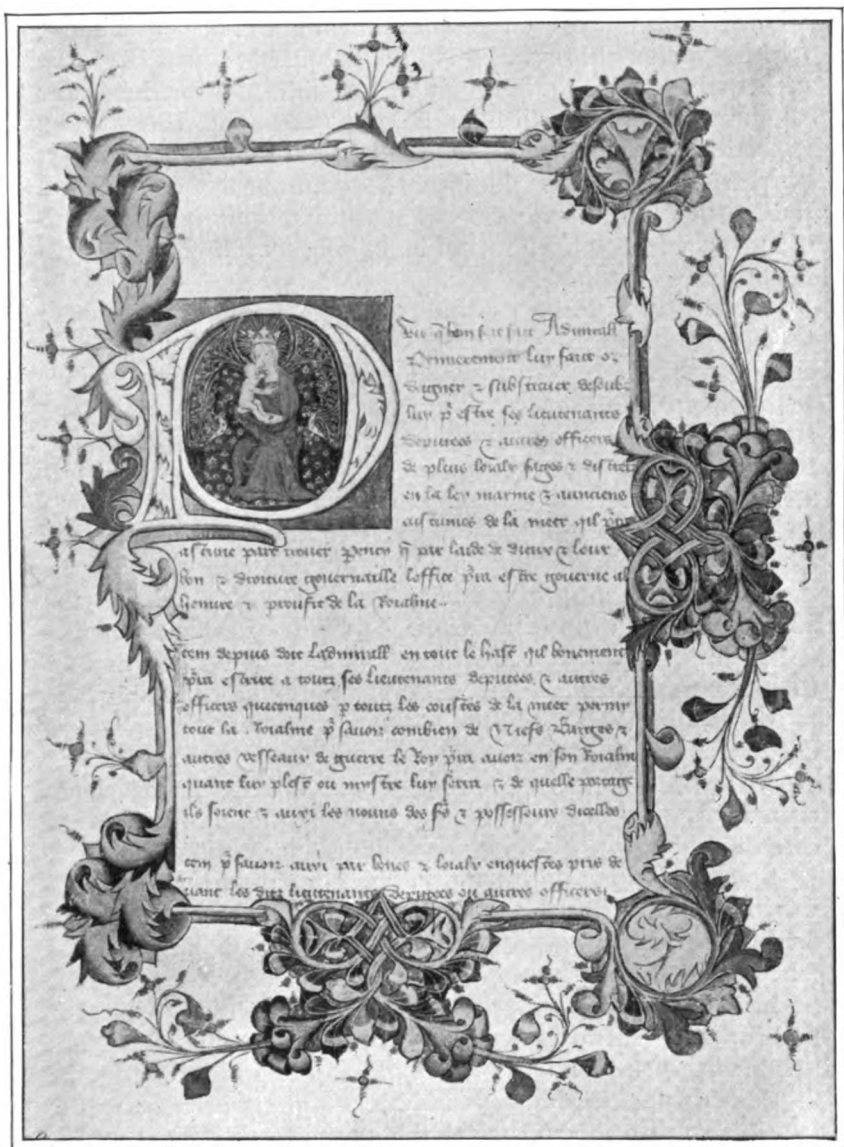 fait Admirall
& Primierement luy faut or
deigner & substituer desoubz
luy p̃ estre ses lieutenants
deputees & autres officers
de plus loialx sages & discretz
en la ley marine & aunciens
custumes de la meer qil p̃ra
ascune part trover Pency q̃ par laide de dieux & leur
bon & droiture gouvernaille loffice p̃ra estre governe al
honure & proufit de la Roialme
tem depuis doit Ladmirall en tout le hast qil bonement
p̃ra escrire a toutz ses lieutenants deputees & autres
officers queconques p toutz les coustes de la meer parmy
tout la Roialme p̃ savoir combien de Niefs Barges &
autres vesseaux de guerre le Roy p̃ra avoir en son Roialme
quant luy plest ou mystre luy serra & de quelle portage
ils soient & auxi les nouns des & possessours dicelles
tem p̃ savoir auxi par bones & loialx enquestes pris de
vant les ditz lieutenants deputees ou autres officers